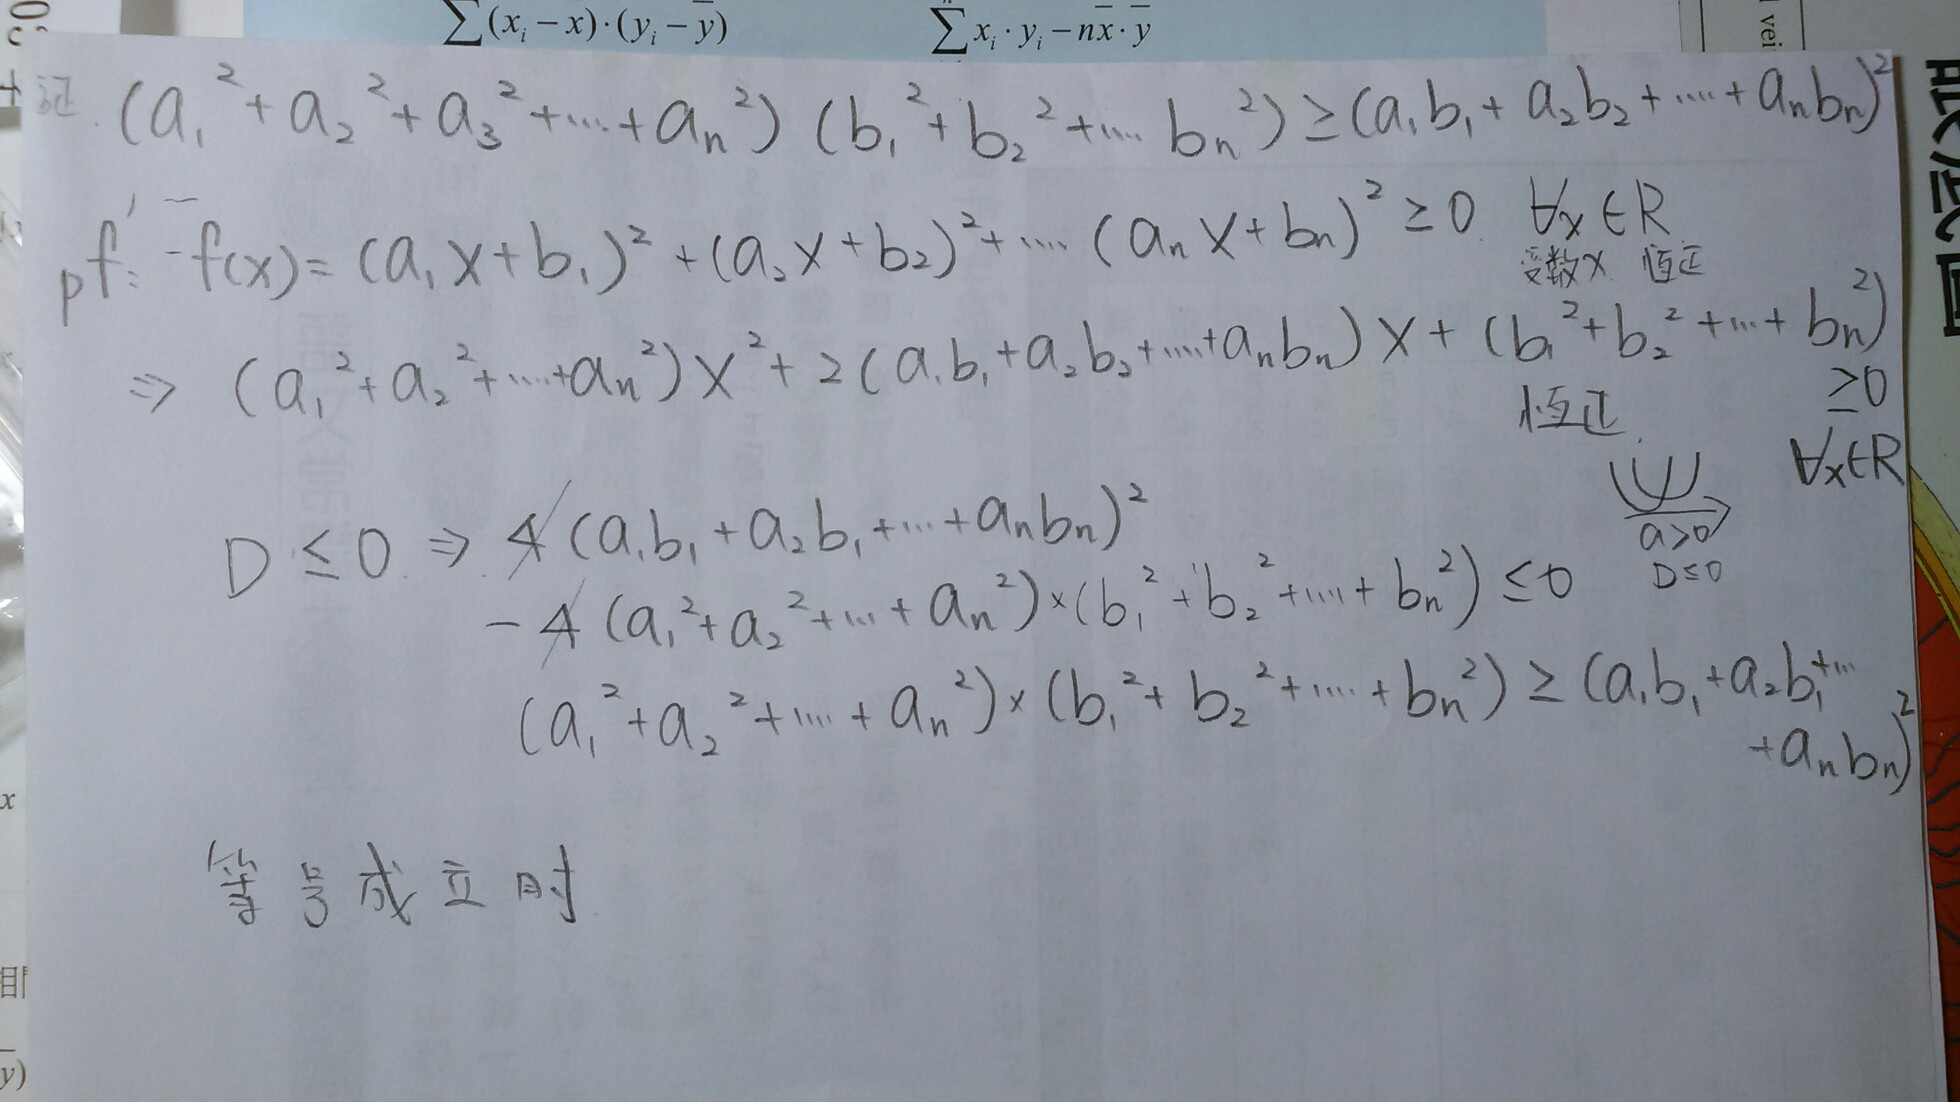 ∑(xᵢ − x)·(yᵢ − y̅)    ∑xᵢ·yᵢ − nx̅·y̅
証. (a₁² + a₂² + a₃² + ⋯ + aₙ²) (b₁² + b₂² + ⋯ bₙ²) ≥ (a₁b₁ + a₂b₂ + ⋯ + aₙbₙ)²
pf: f(x) = (a₁x + b₁)² + (a₂x + b₂)² + ⋯ (aₙx + bₙ)² ≥ 0 ∀x∈R
变数x 恒正
⇒ (a₁² + a₂² + ⋯ + aₙ²)x² + 2(a₁b₁ + a₂b₂ + ⋯ + aₙbₙ)x + (b₁² + b₂² + ⋯ + bₙ²) ≥ 0
恒正. ∀x∈R
D ≤ 0 ⇒ 4(a₁b₁ + a₂b₁ + ⋯ + aₙbₙ)²
a>0
− 4(a₁² + a₂² + ⋯ + aₙ²)×(b₁² + b₂² + ⋯ + bₙ²) ≤ 0
D≤0
(a₁² + a₂² + ⋯ + aₙ²)×(b₁² + b₂² + ⋯ + bₙ²) ≥ (a₁b₁ + a₂b₁ + ⋯
+ aₙbₙ)²
等号成立时
x
相
y̅)
vei